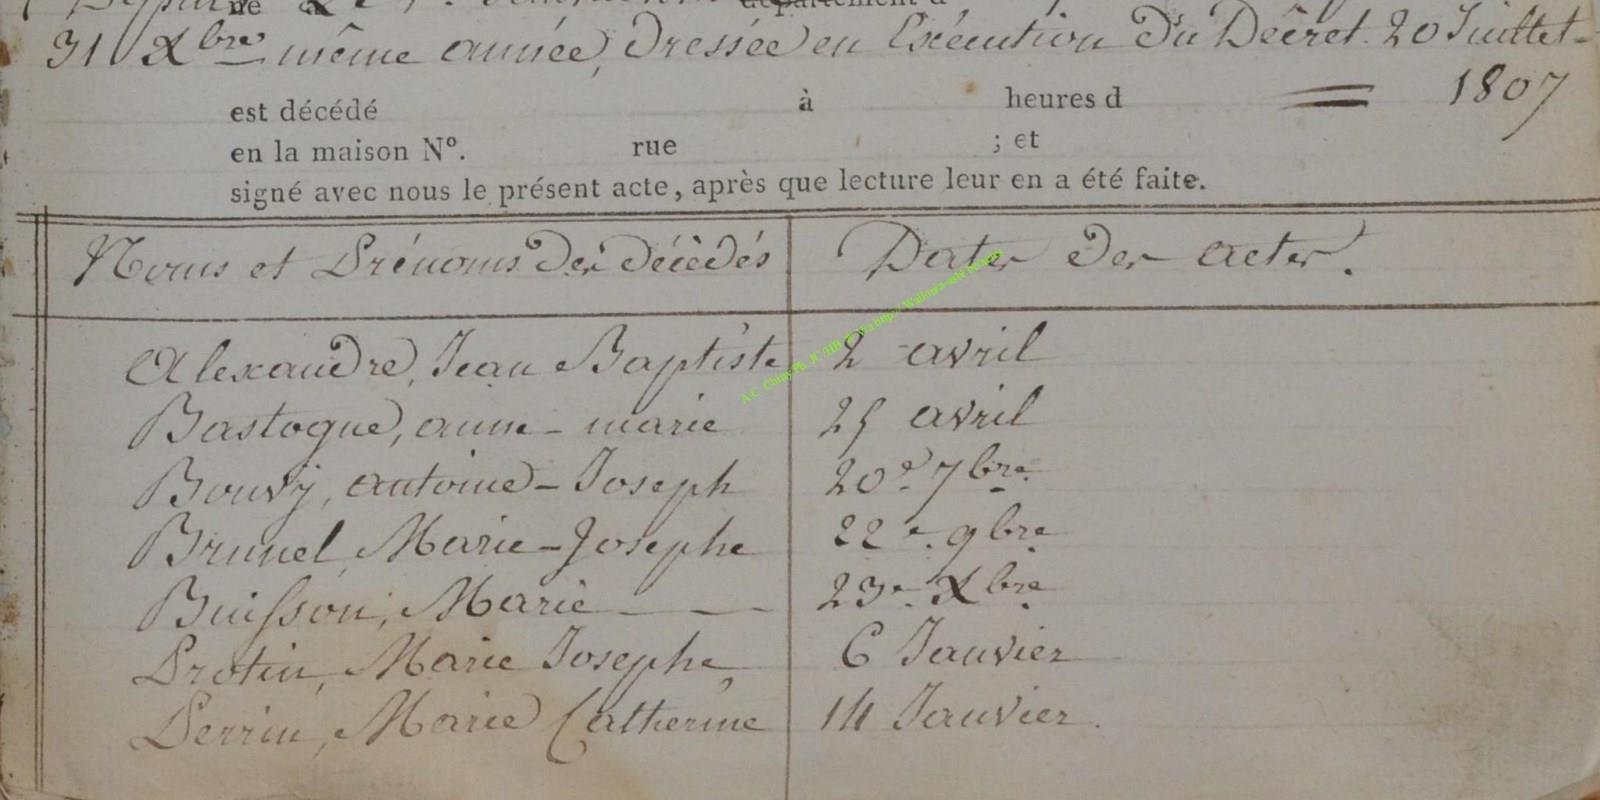 né à département d
31 Xbre même année, Dressée en Exécution du Décret 20 Juillet
est décédé à heures d 1807
en la maison N°. rue ; et
signé avec nous le présent acte, après que lecture leur en a été faite.
Noms et Prénoms des décédés Dates des actes.
Alexandre, Jean Baptiste 2 avril
Bastogne, anne-marie 25 avril
Bouvy, antoine-Joseph 20e 7bre
Brunel, Marie-Josephe 22e. 9bre
Buisson, Marie 23e. Xbre
Protin, Marie Josephe, 6 Janvier
Perrin, Marie Catherine 14 Janvier.